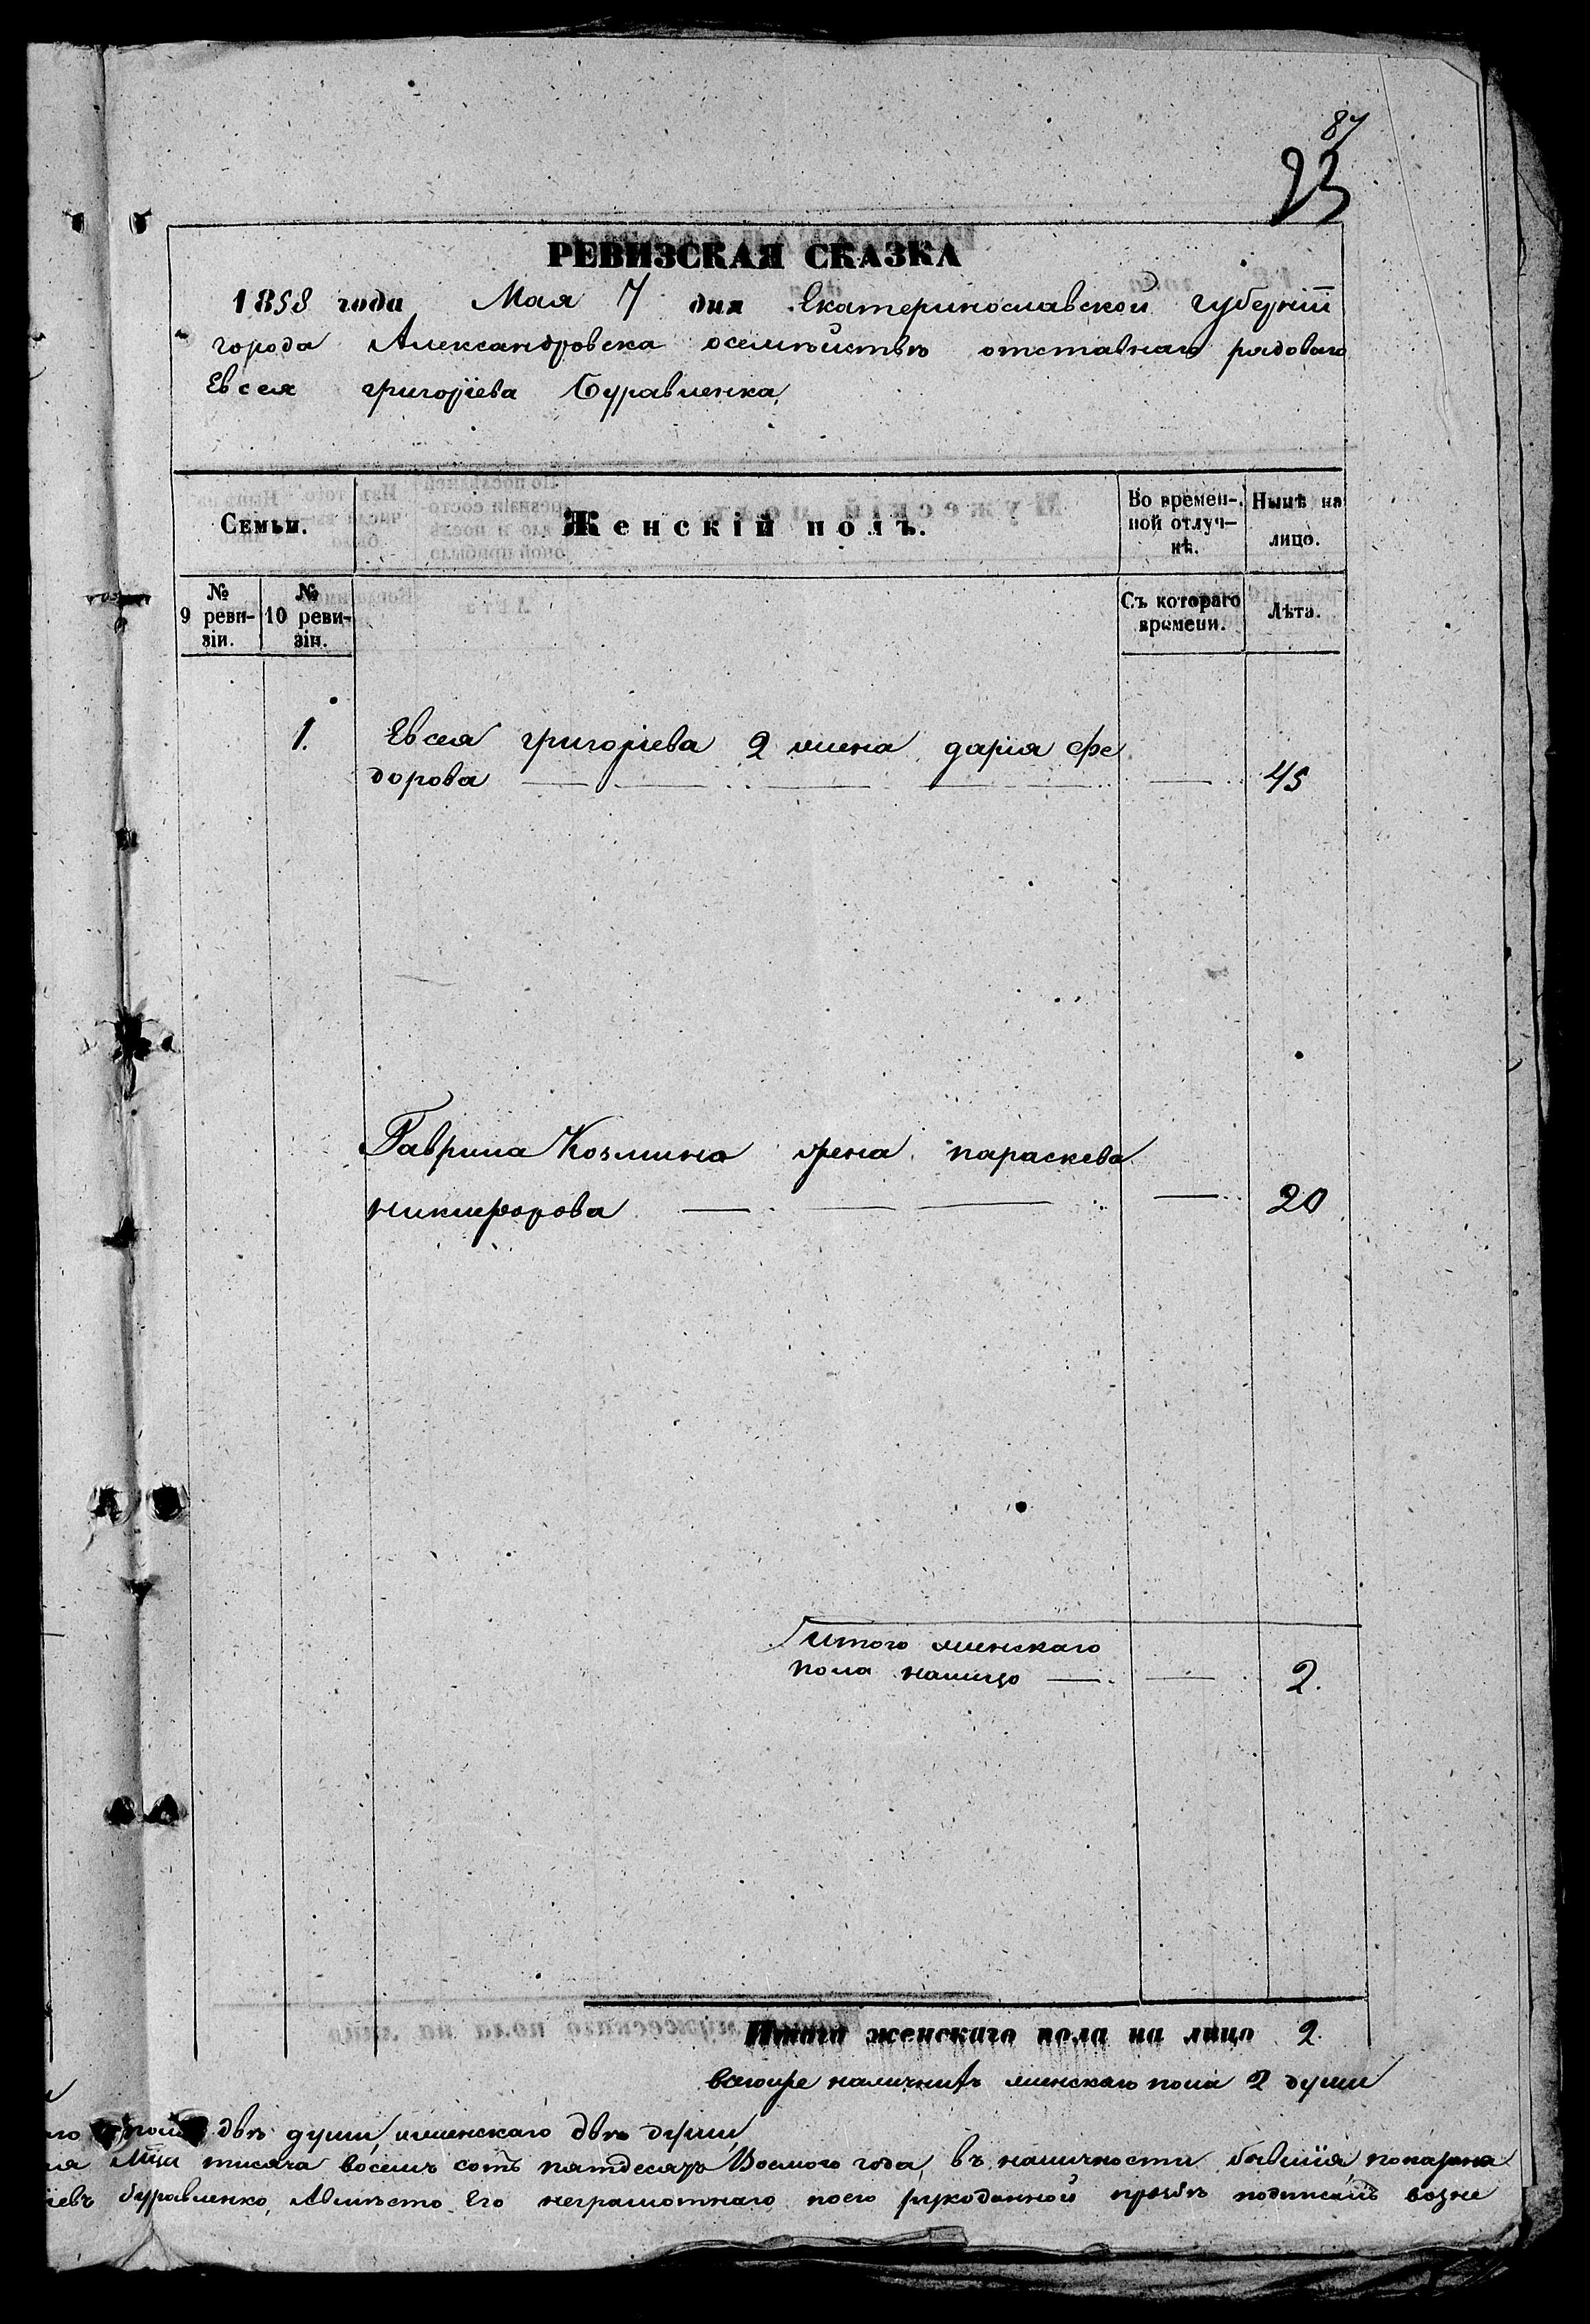 87
23
РЕВИЗСКАЯ СКАЗКА
1858 года Мая 7 дня Екатеринославской губерніи
города Александровска осемѣйствѣ отставнаго рядоваго
Евсея григоріева Буравленка
Семьи.
Женскій полъ.
Во времен-
ной отлуч-
кѣ.
Нынѣ на
лицо.
№
9 реви-
зіи.
№
10 реви-
зіи.
Съ котораго
времени.
Лѣта.
1. Евсея григоріева 2 жена дарія Фе
дорова 45
Гаврила Козмина жена параскева
никифорова 20
итого женскаго
пола налицо 2.
Итого женскаго пола на лицо 2.
всегоже наличныхъ женскаго пола 2 души
двѣ души, иженскаго двѣ души
тисяча восемь сотъ пятдесятъ Восмого года, въ наличности бывшія, показана
буравленко, Авмѣсто Его неграмотнаго поего рукоданной прозбѣ подписалъ